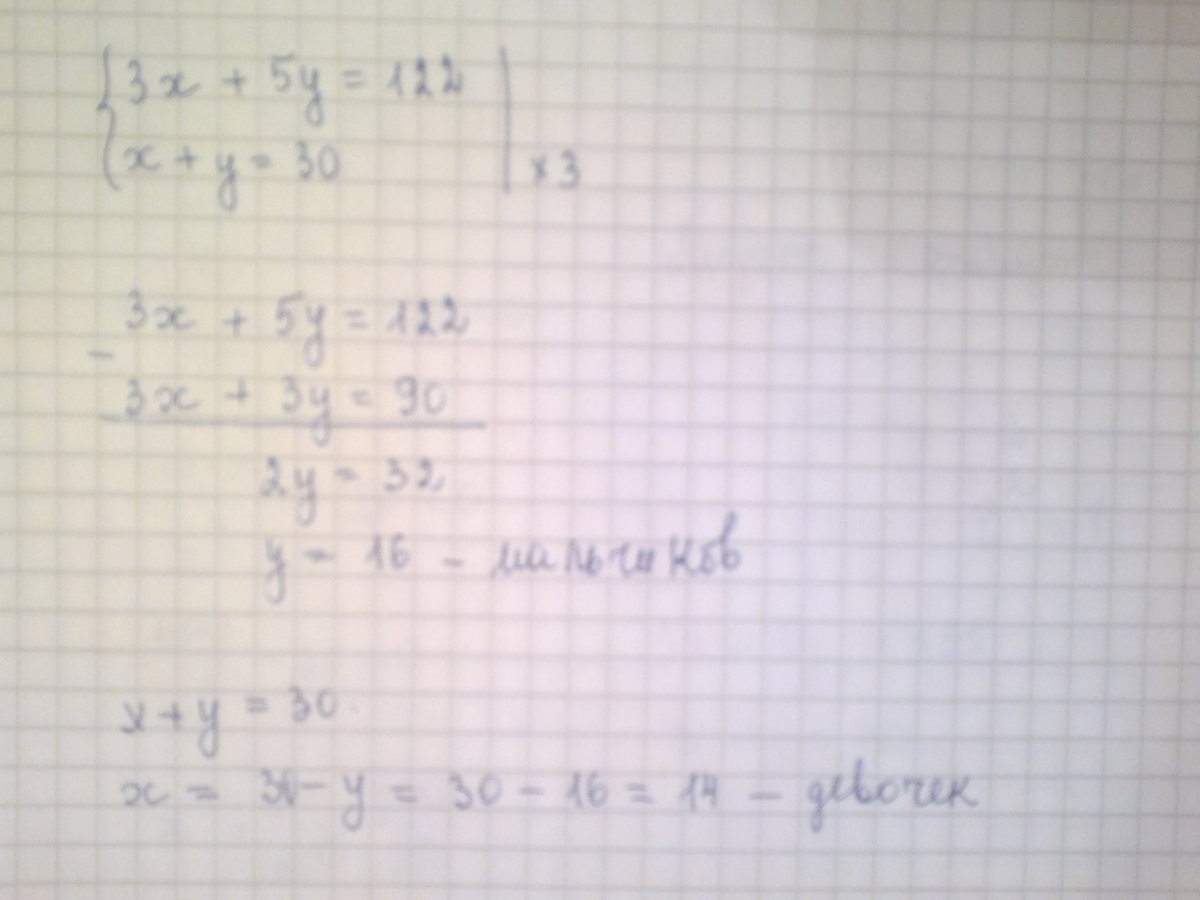 { 3x + 5y = 122 |
x + y = 30 | x 3
3x + 5y = 122
-
3x + 3y = 90
2y = 32
y = 16 - мальчиков
x + y = 30
x = 30 - y = 30 - 16 = 14 - девочек